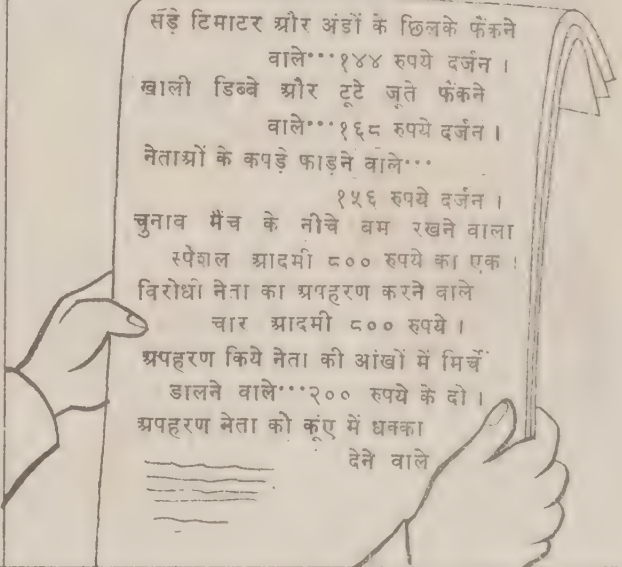 सड़े टिमाटर और अंडों के छिलके फेंकने
वाले...१४४ रुपये दर्जन ।
खाली डिब्बे और टूटे जूते फेंकने
वाले...१६८ रुपये दर्जन ।
नेताओं के कपड़े फाड़ने वाले...
१५६ रुपये दर्जन ।
चुनाव मैंच के नीचे बम रखने वाला
स्पेशल आदमी ८०० रुपये का एक ।
विरोधी नेता का अपहरण करने वाले
चार आदमी ८०० रुपये ।
अपहरण किये नेता की आंखों में मिर्चें
डालने वाले...२०० रुपये के दो ।
अपहरण नेता को कूंए में धक्का
देने वाले